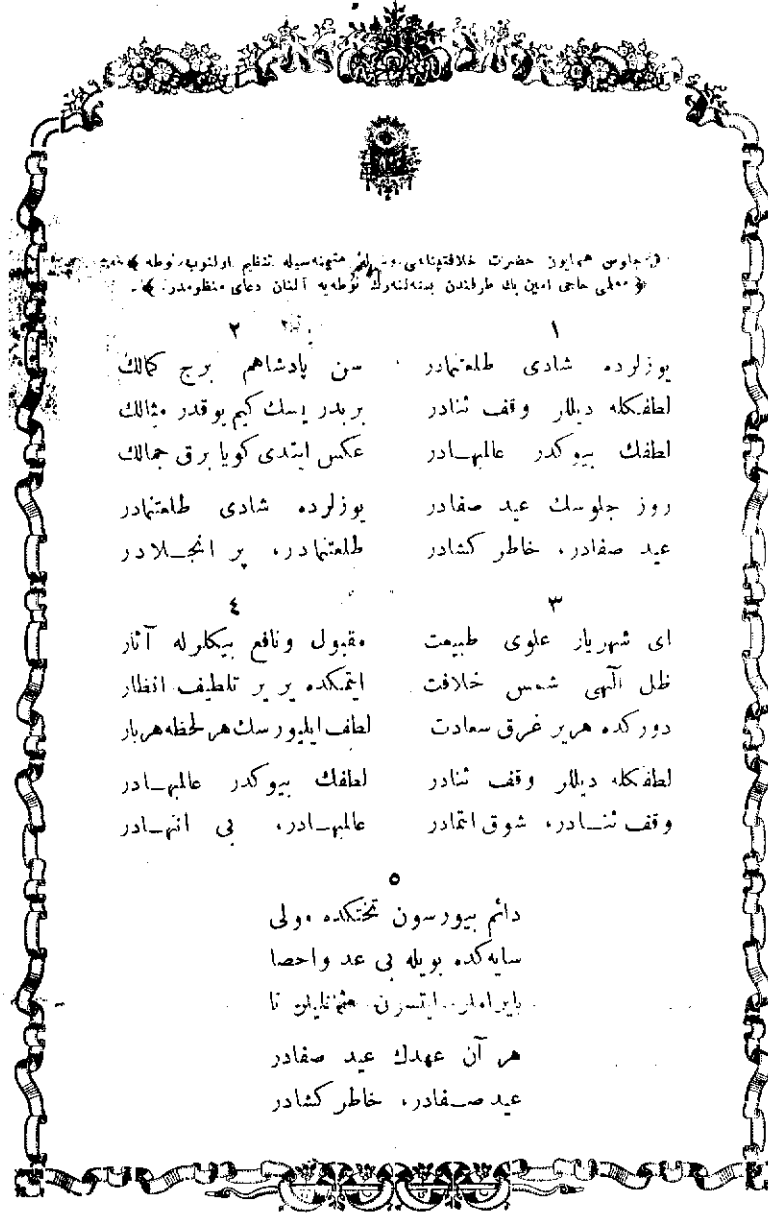 جلوس همايون حضرت خلافتپناهى تنظيم اولنوب نوطه
معلمى حاجى امين بك طرفندن بسته‌لنه‌رك نوطه‌يه آلنان دعاى منظومدر.
١
يوزلرده شادى طلعتنمادر
لطفكله ديللر وقف ثنادر
لطفك بيوكدر عالمبهادر
روز جلوسك عيد صفادر
عيد صفادر، خاطر كشادر
٢
سن پادشاهم برج كمالك
بر بدريسك كيم يوقدر مثالك
عكس ايتدى كويا برق جمالك
يوزلرده شادى طلعتنمادر
طلعتنمادر، پر انجلادر
٣
اى شهريار علوى طبيعت
ظل آلهى شمس خلافت
دوركده هربر غرق سعادت
لطفكله ديللر وقف ثنادر
وقف ثنادر، شوق اتمادر
٤
مقبول ونافع بيكلرله آثار
ايتمكده بر بر تلطيف انظار
لطف ايليورسك هر لحظه هربار
لطفك بيوكدر عالمبهادر
عالمبهادر، بى انتهادر
٥
دائم بيورسون تختكده مولى
سايه‌كده بويله بى عد واحصا
بايراملر ايتسون عثمانليلر تا
هر آن عهدك عيد صفادر
عيد صفادر، خاطر كشادر